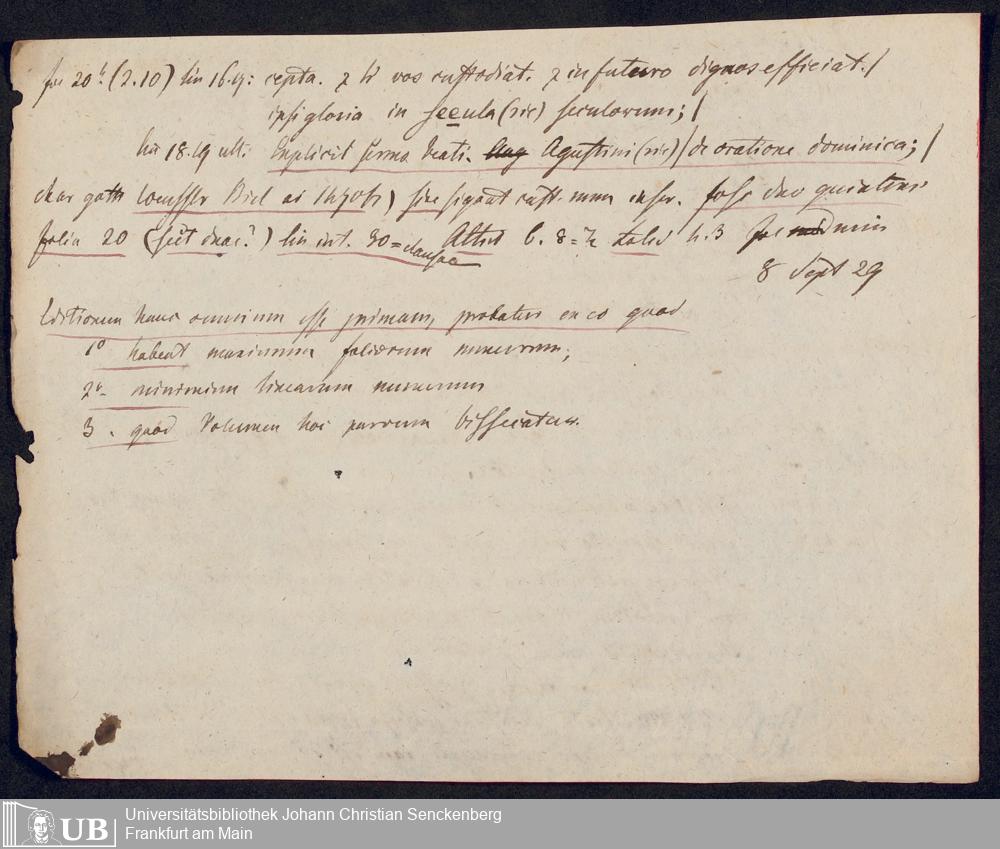 fol 20b. (2.10) lin 16.17: cepta. & hic vos custodiat. & in futuro dignos efficiat. /
ipsi gloria in seecula (sic) seculorum; /
lin 18.19 ult: Explicit sermo beati. Aug Agustini (sic) / de oratione dominica; /
char goth sine signat cust. num inser.
folia 20 (sunt duae?) lin int. 30 = clausae Altit b. 8 = h lat h. 3 min
8 Sept 29
Editionem hanc omnium esse primam, probatur ex eo quod
1o habeat maximum foliorum numerum;
2o- minimum linearum numerum
3. quod Volumen hoc parvum bissecatur.
Universitätsbibliothek Johann Christian Senckenberg
UB Frankfurt am Main